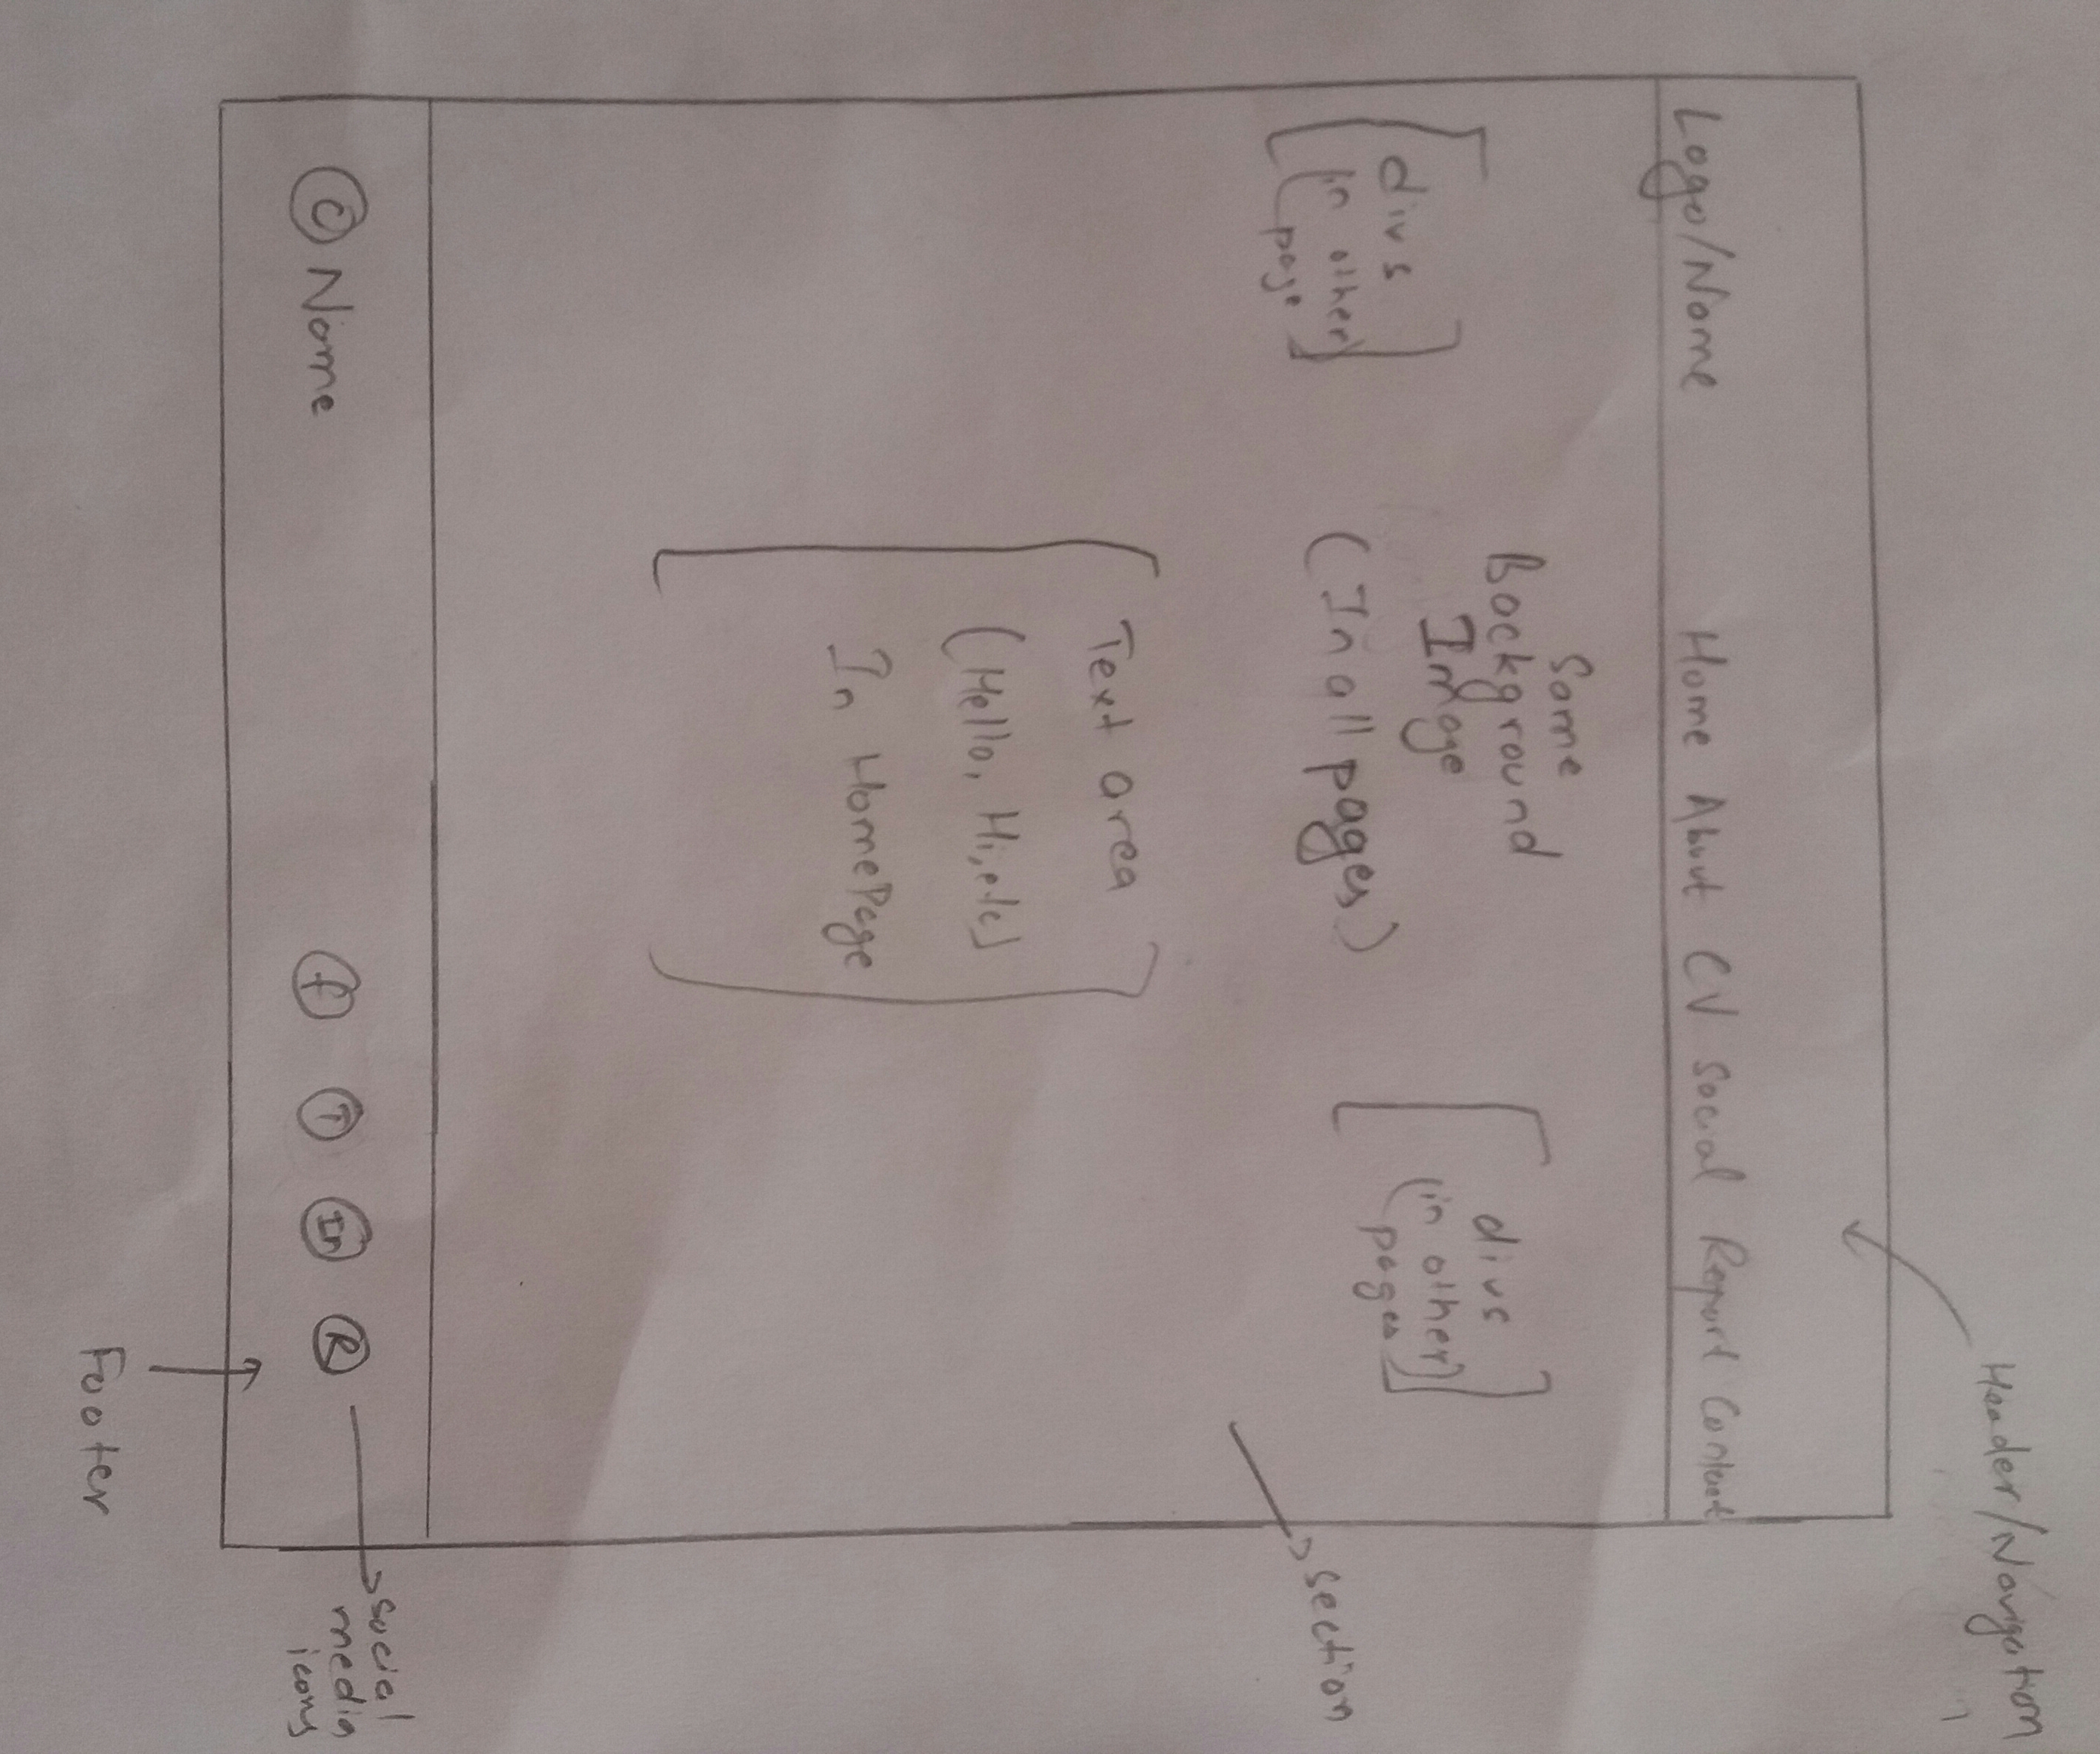 Header/Navigation
Logo/Name Home About CV Social Report Contact
Some
Background
Image
(In all pages)
divs
(in other
page
divs
(in other)
pages
section
Text area
(Hello, Hi,etc)
In HomePage
© Name f T In R
social
media
icons
Footer